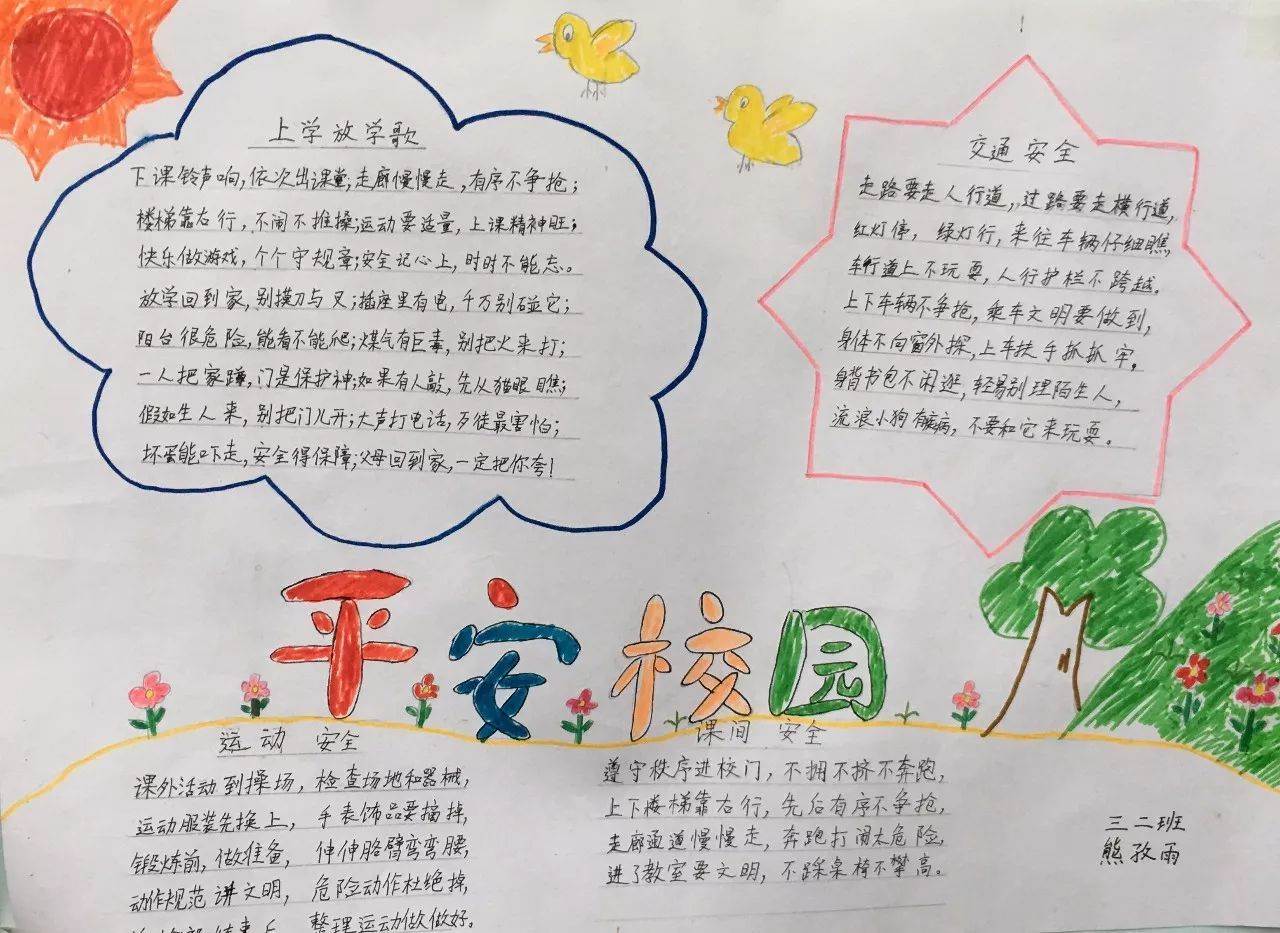 上学放学歌
下课铃声响,依次出课堂;走廊慢慢走,有序不争抢;
楼梯靠右行,不闹不推搡;运动要适量,上课精神旺;
快乐做游戏,个个守规章;安全记心上,时时不能忘。
放学回到家,别摸刀与叉;插座里有电,千万别碰它;
阳台很危险,能看不能爬;煤气有巨毒,别把火来打;
一人把家蹲,门是保护神;如果有人敲,先从猫眼瞧;
假如生人来,别把门儿开;大声打电话,歹徒最害怕;
坏蛋能吓走,安全得保障;父母回到家,一定把你夸!
交通安全
走路要走人行道,过路要走横行道,
红灯停,绿灯行,来往车辆仔细瞧,
车行道上不玩耍,人行护栏不跨越。
上下车辆不争抢,乘车文明要做到,
身体不向窗外探,上车扶手抓抓牢。
身背书包不闲逛,轻易别理陌生人,
流浪小狗有疾病,不要和它来玩耍。
平安校园
运动安全
课外活动到操场,检查场地和器械,
运动服装先换上,手表饰品要摘掉,
锻炼前,做准备,伸伸胳臂弯弯腰,
动作规范讲文明,危险动作杜绝掉,
结束后,整理运动做做好。
课间安全
遵守秩序进校门,不拥不挤不奔跑,
上下楼梯靠右行,先后有序不争抢,
走廊通道慢慢走,奔跑打闹太危险,
进了教室要文明,不踩桌椅不攀高。
三二班
熊孜雨